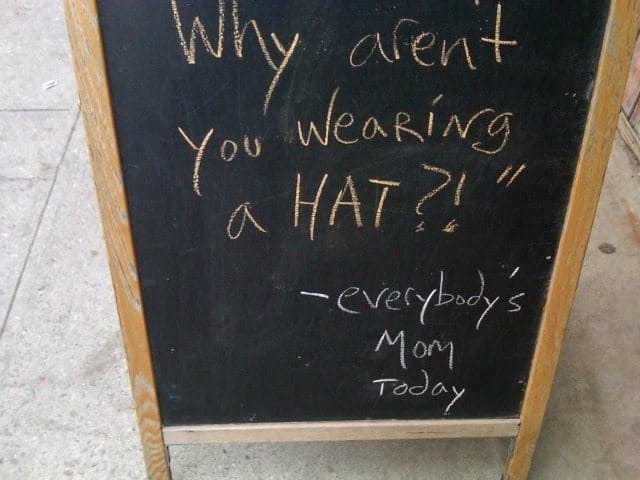 Why aren't
you WeaRiNg
a HAT?!"
- everybody's
Mom
Today